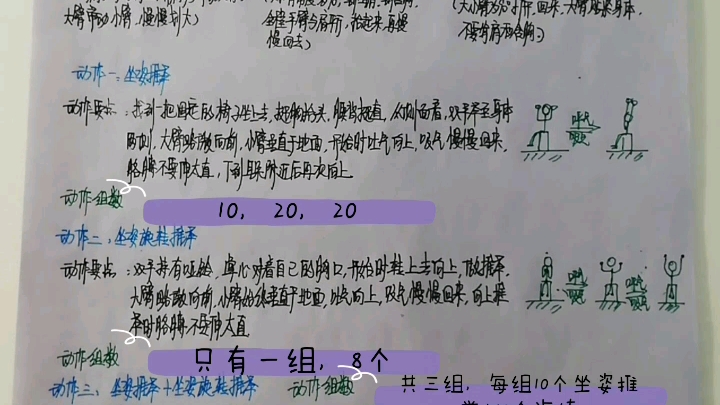 大臂带动小臂，慢慢划大）
慢回去）
动作一：坐姿推举
动作要点：找到一把固定的椅子坐上去，挺胸抬头，腰背挺直，从侧面看，双手举至身体
两侧，大臂略微向前，小臂垂直于地面，开始时吐气向上，吸气慢慢回来，
胳膊不要伸太直，下到耳朵附近后再次向上。
呼气
吸气
动作组数
10， 20， 20
动作二：坐姿旋转推举
动作要点：双手持有哑铃，掌心对着自己的胸口，开始时转上去向上，做推举，
大臂略微向前，小臂始终垂直于地面，吐气向上，吸气慢慢回来，向上推
举时胳膊不要伸太直
呼气
吸气
呼气
吸气
动作组数
只有一组，8个
动作三：坐姿推举+坐姿旋转推举
动作组数
共三组，每组10个坐姿推